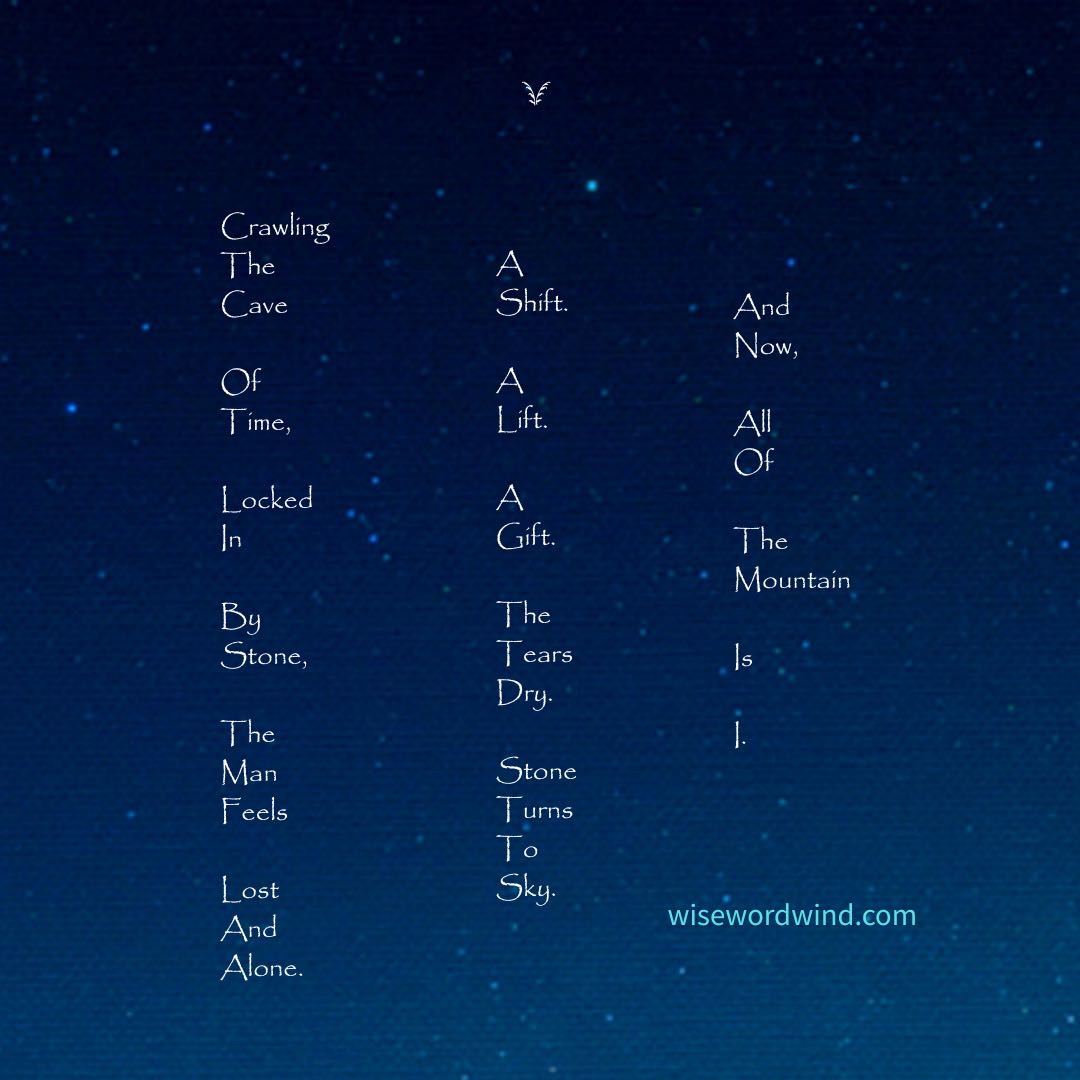 Crawling
The
Cave
Of
Time,
Locked
In
By
Stone,
The
Man
Feels
Lost
And
Alone.
A
Shift.
A
Lift.
A
Gift.
The
Tears
Dry.
Stone
Turns
To
Sky.
And
Now,
All
Of
The
Mountain
Is
I.
wisewordwind.com